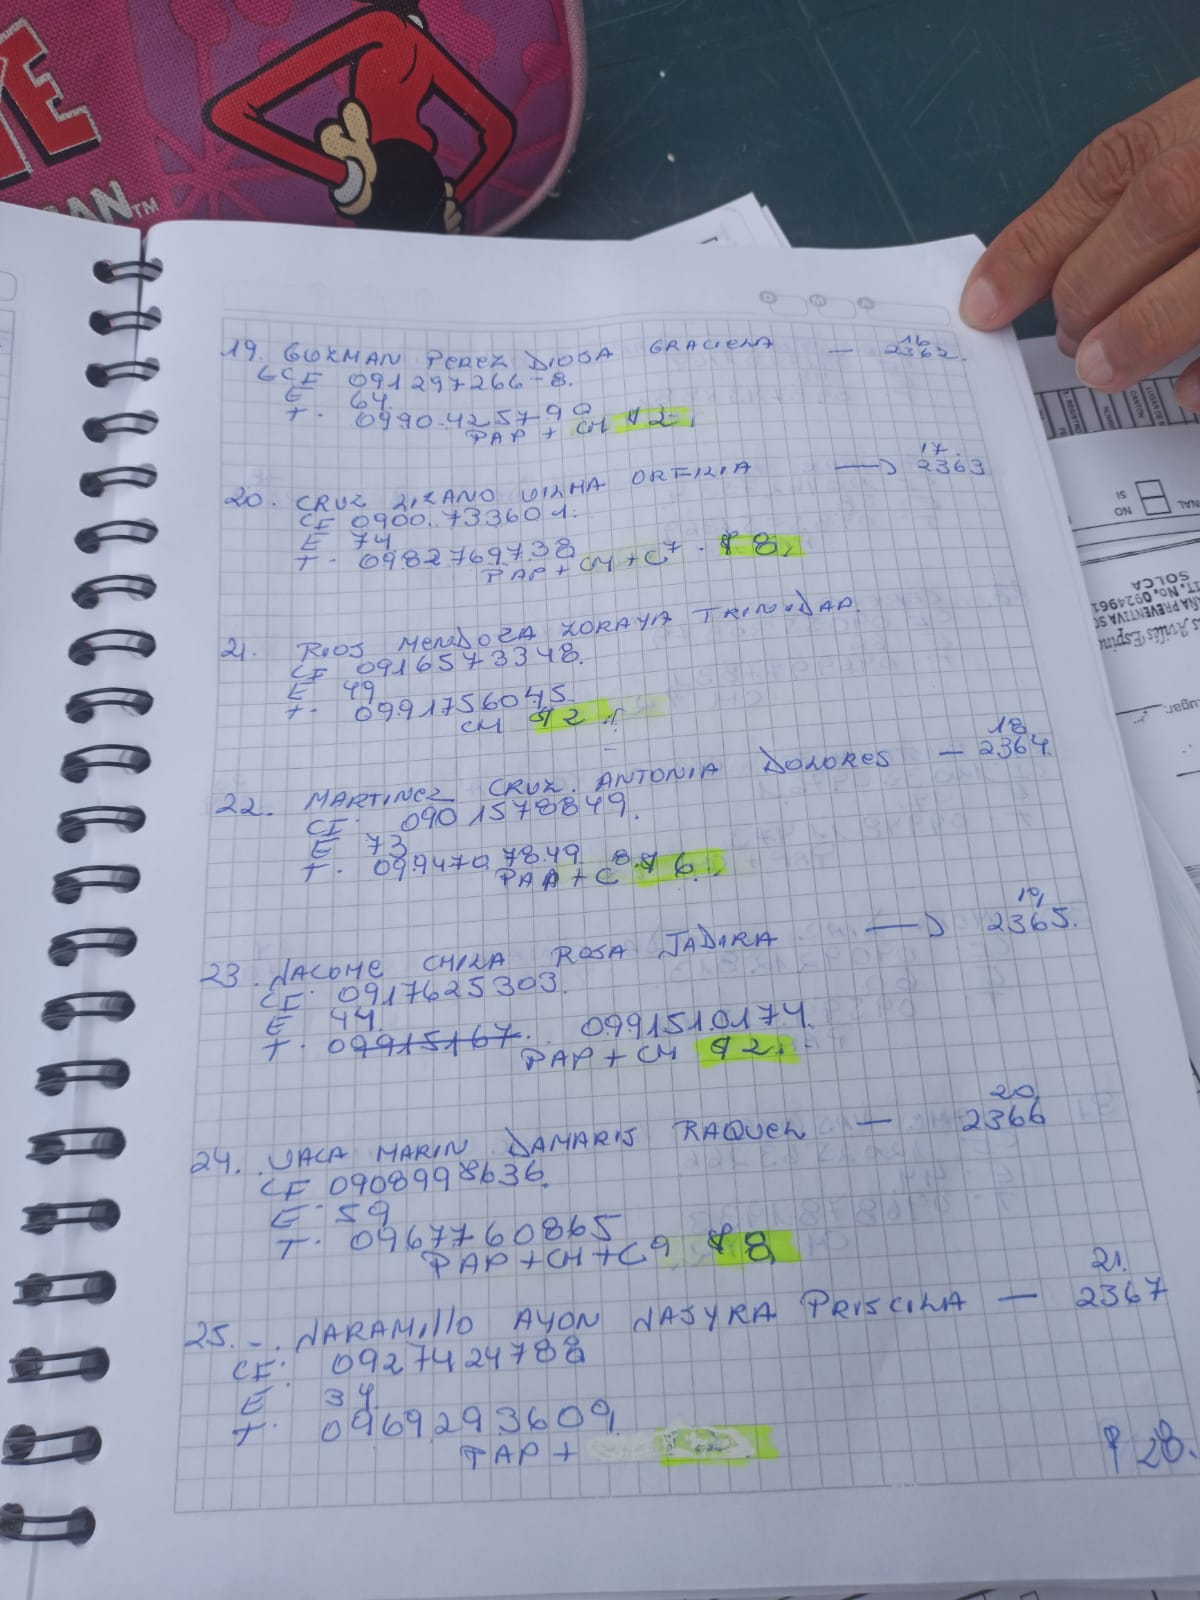 E
MAN™
D M A
19. GUZMAN PEREZ DIOSA GRACIELA — 2362.
16
CI 091297266-8.
E 64.
T. 0990.425790
PAP + CM $2.
20. CRUZ LIZANO VILMA ORFILIA → 2363
17.
CI 0900.733601.
E 74
T. 0982769738
PAP + CM + C7. $8.
21. RIOS MENDOZA ZORAYA TRINIDAD.
CI 0916573348.
E 49
T. 0991756045.
CM $2
22. MARTINEZ CRUZ. ANTONIA DOLORES — 2364.
18.
CI. 0901578849.
E 73
T. 099470.7849
PAP + C8. $6.
23. JACOME CHILA ROSA JADIRA → 2365.
19,
CI. 0917625303.
E 44.
T. 09915167. 0991510174.
PAP + CM $2.
24. VACA MARIN DAMARIS RAQUEL — 2366
20
CI 0908998636.
E. 59
T. 0967760865
PAP + CM + C9 $8
25.-. JARAMILLO AYON JASYRA PRISCILA — 2367
21.
CI: 0927424788
E 34.
T. 0969293609,
PAP +
$28.
LUGAR DE
CANTÓN
NO
SI
SOLCA
PREVENTIVA
No. 0924961
Espin
ugar: